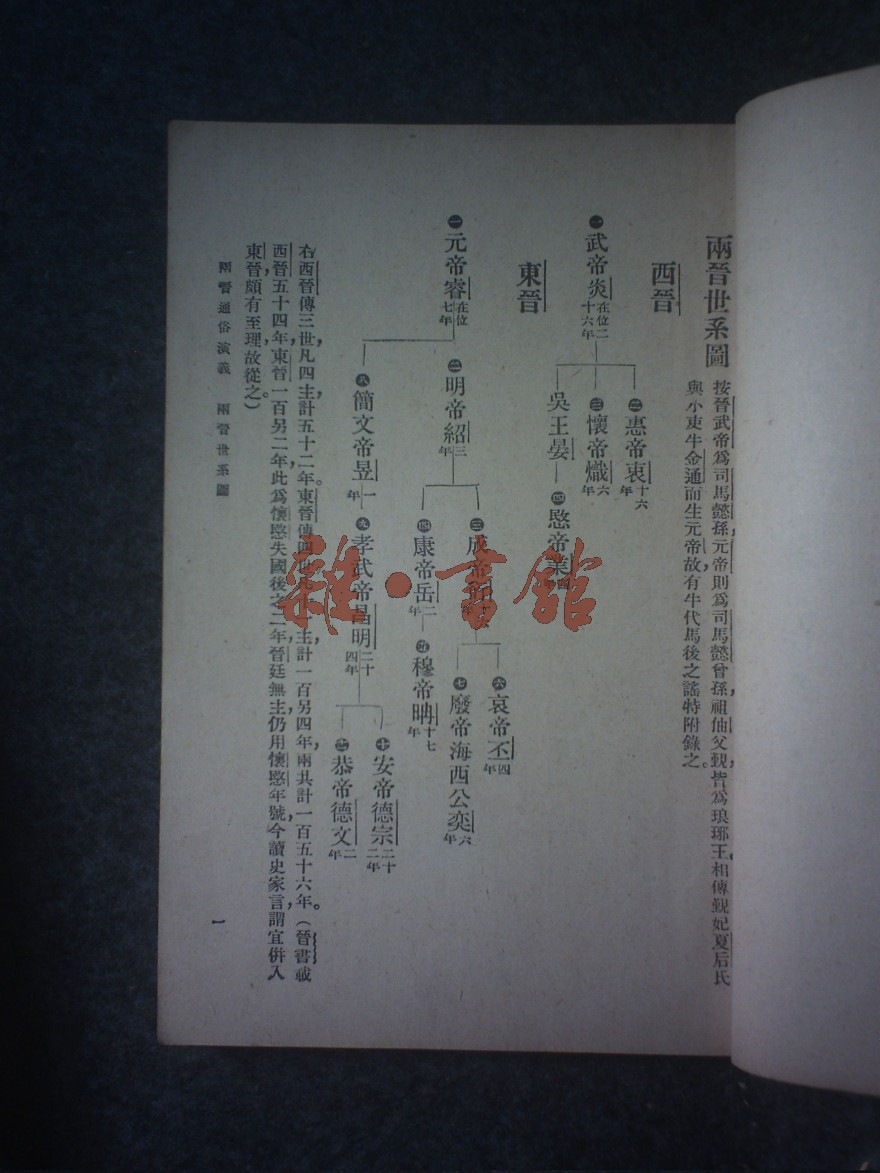 兩晉世系圖
按晉武帝爲司馬懿孫，元帝則爲司馬懿曾孫，祖伷父覲，皆爲琅琊王，相傳覲妃夏后氏
與小吏牛金通而生元帝，故有牛代馬後之謠，特附錄之。
西晉
㊀武帝炎在位二十六年
㊁惠帝衷十六年
㊂懷帝熾六年
吳王晏
㊃愍帝業四
東晉
㊀元帝睿在位七年
㊁明帝紹三年
㊂成帝
㊅哀帝丕四年
㊆廢帝海西公奕六年
㊃康帝岳二年
㊄穆帝聃十七年
㊇簡文帝昱一年
㊈孝武帝昌明二十四年
㊉安帝德宗二十二年
恭帝德文二年
右西晉傳三世，凡四主，計五十二年。東晉傳四世，主，計一百另四年，兩共計一百五十六年。（晉書載
西晉五十四年，東晉一百另二年，此爲懷愍失國後之二年，晉廷無主，仍用懷愍年號，今讀史家言，謂宜併入
東晉，頗有至理，故從之。）
兩晉通俗演義　兩晉世系圖
一
雜·書館